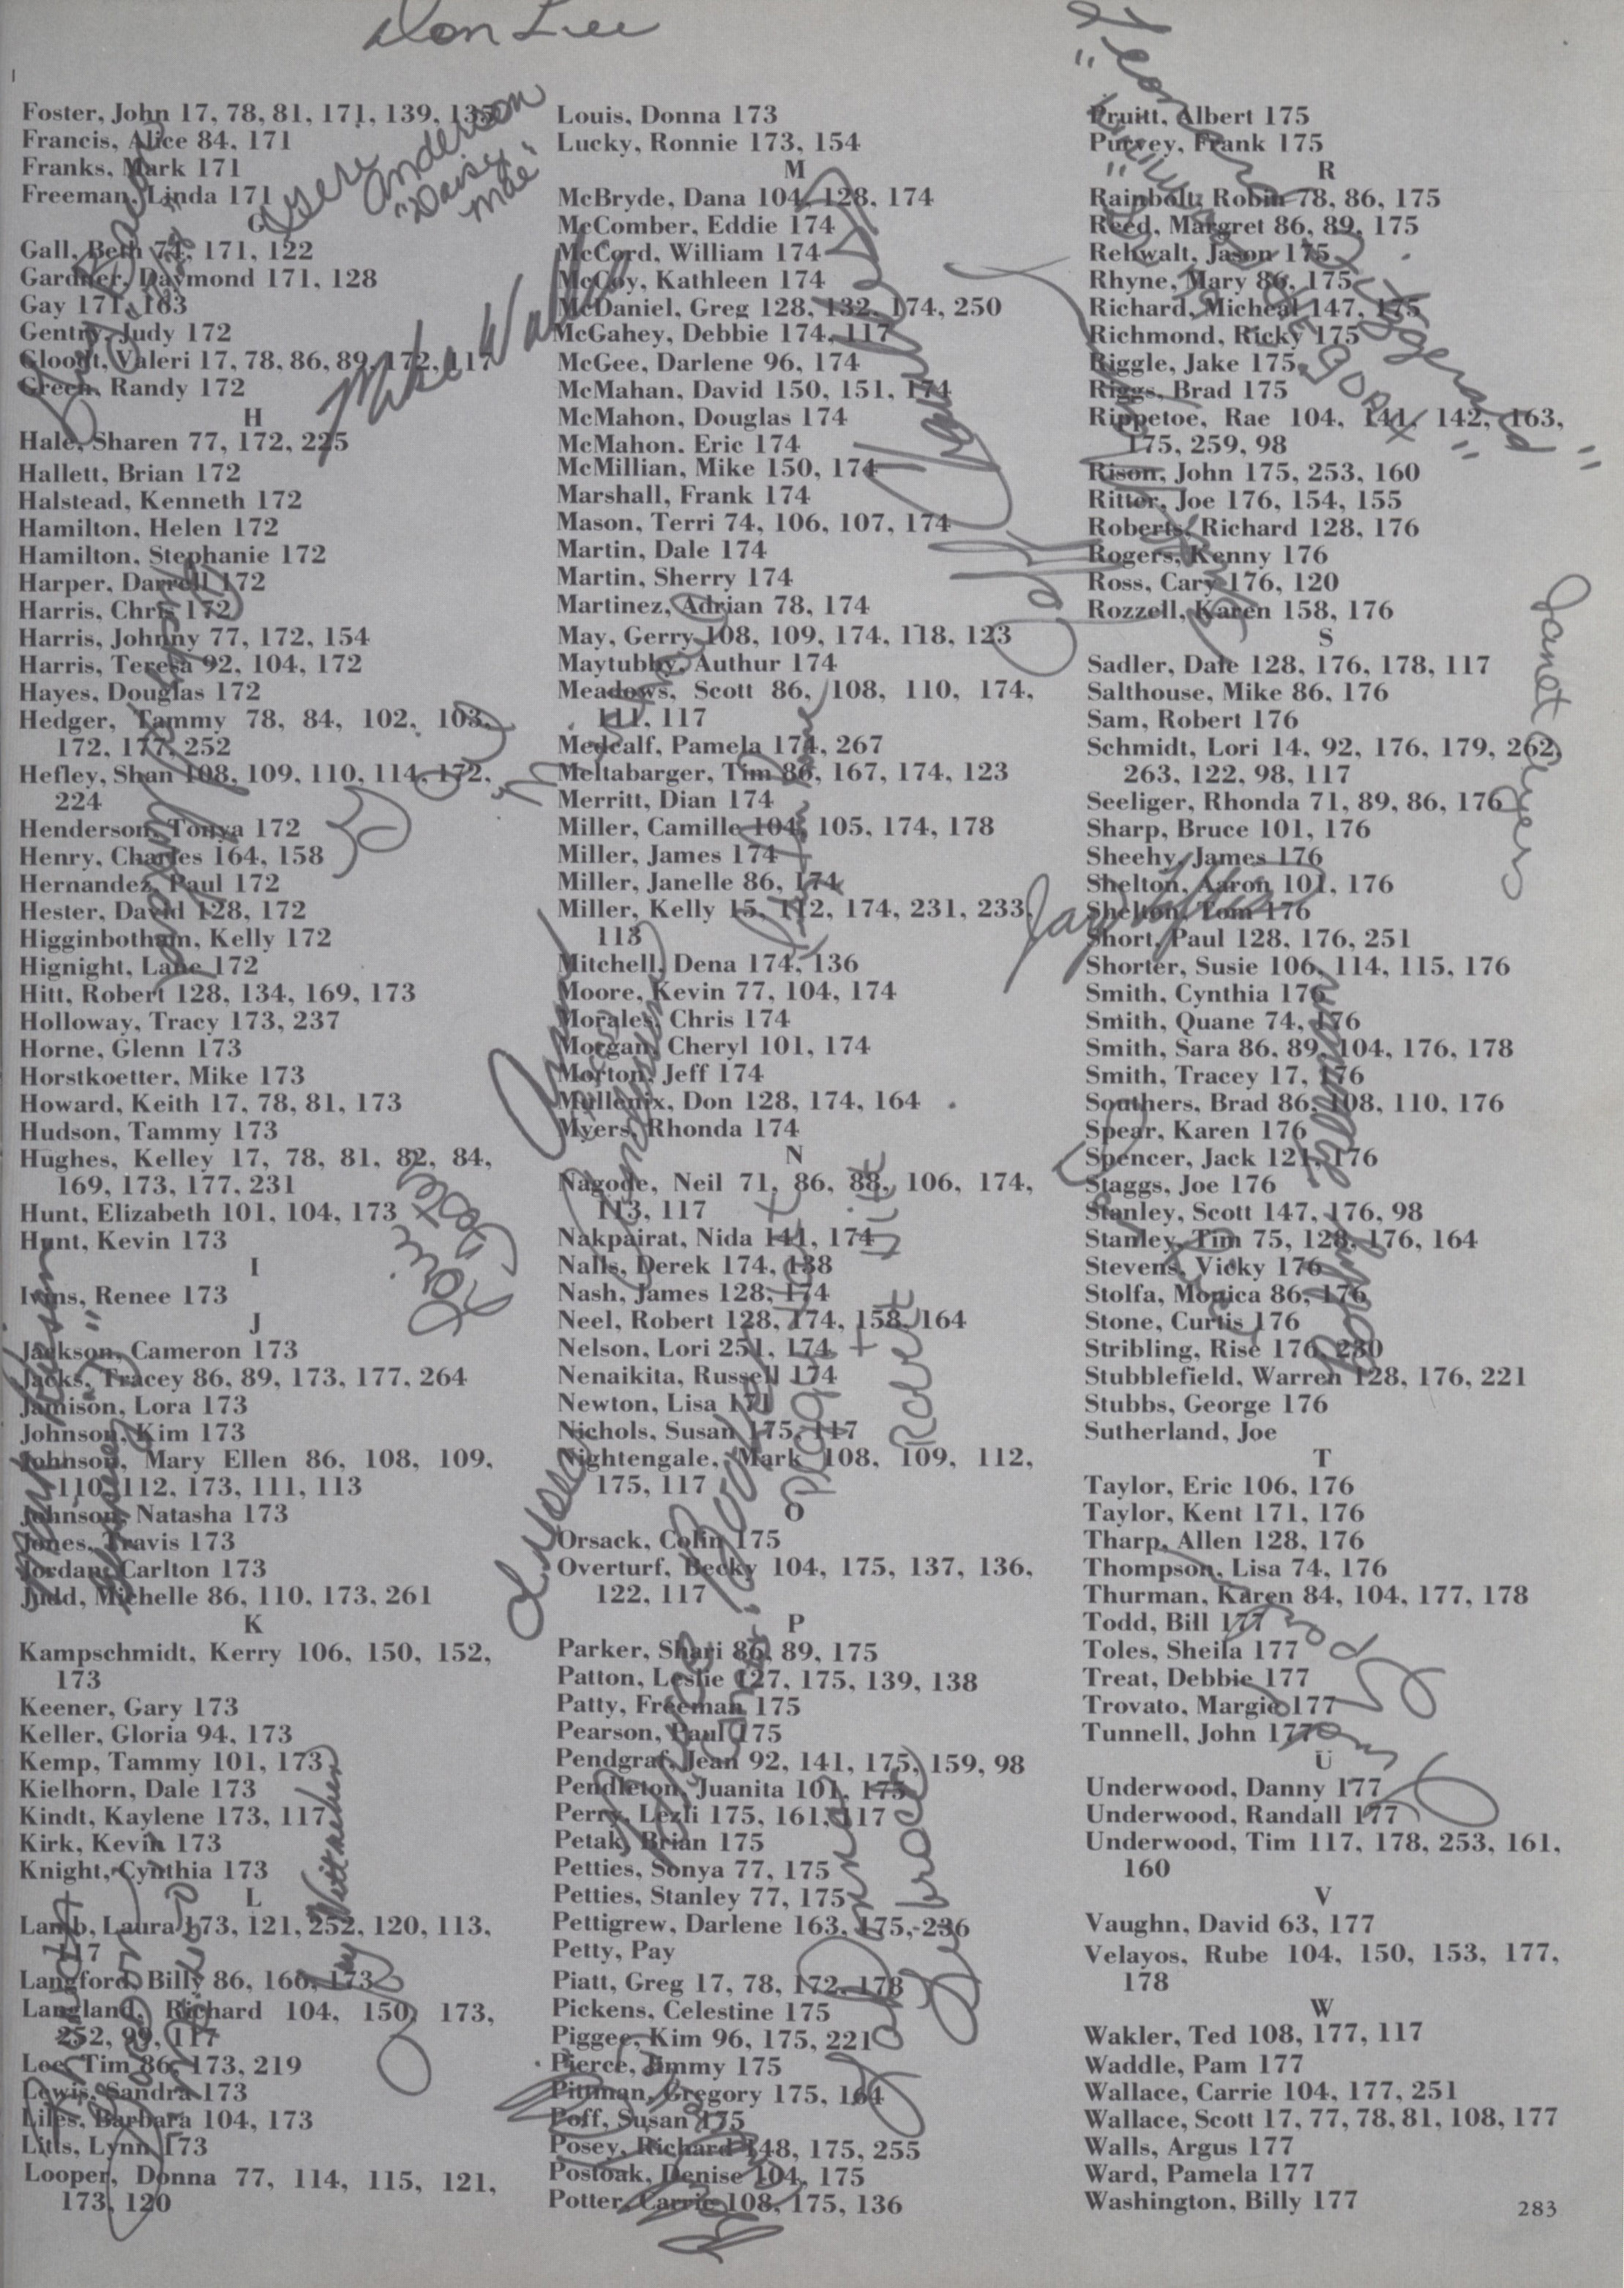 Don Lee
Foster, John 17, 78, 81, 171, 139, 135
Francis, Alice 84, 171
Franks, Mark 171
Freeman, Linda 171
G
Gall, Beth 71, 171, 122
Gardner, Daymond 171, 128
Gay 171, 163
Gentry, Judy 172
Gloodt, Valeri 17, 78, 86, 89, 172, 117
Green, Randy 172
H
Hale, Sharen 77, 172, 225
Hallett, Brian 172
Halstead, Kenneth 172
Hamilton, Helen 172
Hamilton, Stephanie 172
Harper, Darrell 172
Harris, Chris 172
Harris, Johnny 77, 172, 154
Harris, Teresa 92, 104, 172
Hayes, Douglas 172
Hedger, Tammy 78, 84, 102, 103,
172, 177, 252
Hefley, Shan 108, 109, 110, 114, 172,
224
Henderson, Tonya 172
Henry, Charles 164, 158
Hernandez, Paul 172
Hester, David 128, 172
Higginbotham, Kelly 172
Hignight, Lane 172
Hitt, Robert 128, 134, 169, 173
Holloway, Tracy 173, 237
Horne, Glenn 173
Horstkoetter, Mike 173
Howard, Keith 17, 78, 81, 173
Hudson, Tammy 173
Hughes, Kelley 17, 78, 81, 82, 84,
169, 173, 177, 231
Hunt, Elizabeth 101, 104, 173
Hunt, Kevin 173
I
Ivins, Renee 173
J
Jackson, Cameron 173
Jacks, Tracey 86, 89, 173, 177, 264
Jamison, Lora 173
Johnson, Kim 173
Johnson, Mary Ellen 86, 108, 109,
110, 112, 173, 111, 113
Johnson, Natasha 173
Jones, Travis 173
Jordan, Carlton 173
Judd, Michelle 86, 110, 173, 261
K
Kampschmidt, Kerry 106, 150, 152,
173
Keener, Gary 173
Keller, Gloria 94, 173
Kemp, Tammy 101, 173
Kielhorn, Dale 173
Kindt, Kaylene 173, 117
Kirk, Kevin 173
Knight, Cynthia 173
L
Lamb, Laura 173, 121, 252, 120, 113,
117
Langford, Billy 86, 166, 173
Langland, Richard 104, 150, 173,
252, 99, 117
Lee, Tim 86, 173, 219
Lewis, Sandra 173
Liles, Barbara 104, 173
Litts, Lynn 173
Looper, Donna 77, 114, 115, 121,
173, 120
Louis, Donna 173
Lucky, Ronnie 173, 154
M
McBryde, Dana 104, 128, 174
McComber, Eddie 174
McCord, William 174
McCoy, Kathleen 174
McDaniel, Greg 128, 132, 174, 250
McGahey, Debbie 174, 117
McGee, Darlene 96, 174
McMahan, David 150, 151, 174
McMahon, Douglas 174
McMahon. Eric 174
McMillian, Mike 150, 174
Marshall, Frank 174
Mason, Terri 74, 106, 107, 174
Martin, Dale 174
Martin, Sherry 174
Martinez, Adrian 78, 174
May, Gerry 108, 109, 174, 118, 123
Maytubby, Authur 174
Meadows, Scott 86, 108, 110, 174,
111, 117
Medcalf, Pamela 174, 267
Meltabarger, Tim 86, 167, 174, 123
Merritt, Dian 174
Miller, Camille 104, 105, 174, 178
Miller, James 174
Miller, Janelle 86, 174
Miller, Kelly 15, 112, 174, 231, 233,
113
Mitchell, Dena 174, 136
Moore, Kevin 77, 104, 174
Morales, Chris 174
Morgan, Cheryl 101, 174
Morton, Jeff 174
Mullenix, Don 128, 174, 164
Myers, Rhonda 174
N
Nagode, Neil 71, 86, 88, 106, 174,
113, 117
Nakpairat, Nida 141, 174
Nalls, Derek 174, 138
Nash, James 128, 174
Neel, Robert 128, 174, 158, 164
Nelson, Lori 251, 174
Nenaikita, Russell 174
Newton, Lisa 171
Nichols, Susan 175, 117
Nightengale, Mark 108, 109, 112,
175, 117
O
Orsack, Colin 175
Overturf, Becky 104, 175, 137, 136,
122, 117
P
Parker, Shari 86, 89, 175
Patton, Leslie 127, 175, 139, 138
Patty, Freeman 175
Pearson, Paul 175
Pendgraf, Jean 92, 141, 175, 159, 98
Pendleton, Juanita 101, 175
Perry, Lezli 175, 161, 117
Petak, Brian 175
Petties, Sonya 77, 175
Petties, Stanley 77, 175
Pettigrew, Darlene 163, 175, 236
Petty, Pay
Piatt, Greg 17, 78, 172, 178
Pickens, Celestine 175
Piggee, Kim 96, 175, 221
Pierce, Jimmy 175
Pittman, Gregory 175, 164
Poff, Susan 175
Posey, Richard 148, 175, 255
Postoak, Denise 104, 175
Potter, Carrie 108, 175, 136
Pruitt, Albert 175
Purvey, Frank 175
R
Rainbolt, Robin 78, 86, 175
Reed, Margret 86, 89, 175
Rehwalt, Jason 175
Rhyne, Mary 86, 175
Richard, Micheal 147, 175
Richmond, Ricky 175
Riggle, Jake 175
Riggs, Brad 175
Rippetoe, Rae 104, 141, 142, 163,
175, 259, 98
Rison, John 175, 253, 160
Ritter, Joe 176, 154, 155
Roberts, Richard 128, 176
Rogers, Kenny 176
Ross, Cary 176, 120
Rozzell, Karen 158, 176
S
Sadler, Dale 128, 176, 178, 117
Salthouse, Mike 86, 176
Sam, Robert 176
Schmidt, Lori 14, 92, 176, 179, 262,
263, 122, 98, 117
Seeliger, Rhonda 71, 89, 86, 176
Sharp, Bruce 101, 176
Sheehy, James 176
Shelton, Aaron 101, 176
Shelton, Tom 176
Short, Paul 128, 176, 251
Shorter, Susie 106, 114, 115, 176
Smith, Cynthia 176
Smith, Quane 74, 176
Smith, Sara 86, 89, 104, 176, 178
Smith, Tracey 17, 176
Southers, Brad 86, 108, 110, 176
Spear, Karen 176
Spencer, Jack 121, 176
Staggs, Joe 176
Stanley, Scott 147, 176, 98
Stanley, Tim 75, 128, 176, 164
Stevens, Vicky 176
Stolfa, Monica 86, 176
Stone, Curtis 176
Stribling, Rise 176, 230
Stubblefield, Warren 128, 176, 221
Stubbs, George 176
Sutherland, Joe
T
Taylor, Eric 106, 176
Taylor, Kent 171, 176
Tharp, Allen 128, 176
Thompson, Lisa 74, 176
Thurman, Karen 84, 104, 177, 178
Todd, Bill 177
Toles, Sheila 177
Treat, Debbie 177
Trovato, Margie 177
Tunnell, John 177
U
Underwood, Danny 177
Underwood, Randall 177
Underwood, Tim 117, 178, 253, 161,
160
V
Vaughn, David 63, 177
Velayos, Rube 104, 150, 153, 177,
178
W
Wakler, Ted 108, 177, 117
Waddle, Pam 177
Wallace, Carrie 104, 177, 251
Wallace, Scott 17, 77, 78, 81, 108, 177
Walls, Argus 177
Ward, Pamela 177
Washington, Billy 177
283
Gere Anderson
"Daisy
Mae"
Mike Wall
Janet Ayers
Robert Uit